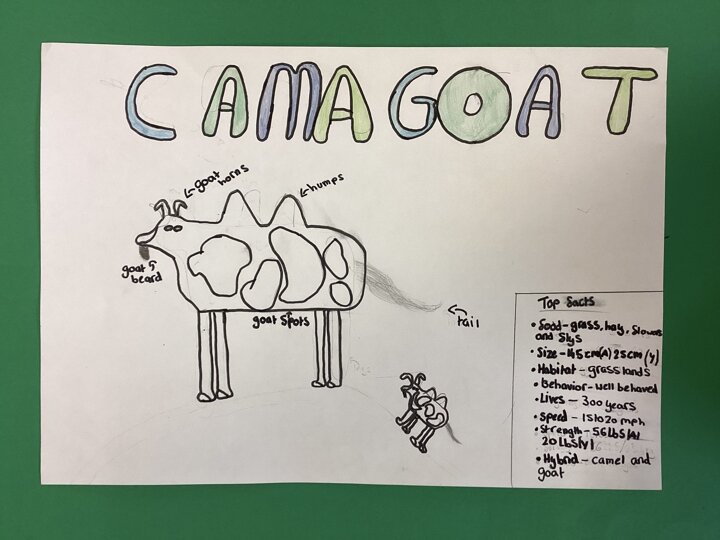 CAMAGOAT
goat
horns
humps
goat
beard
goat spots
tail
Top facts
• food - grass, hay, flowers
and flys
• Size - 145cm(A) 25cm(Y)
• Habitat - grasslands
• Behavior - well behaved
• Lives - 300 years
• Speed - 15 to 20 mph
• Strength - 56 LbS(A)
20 LbS(Y)
• Hybrid - camel and
goat